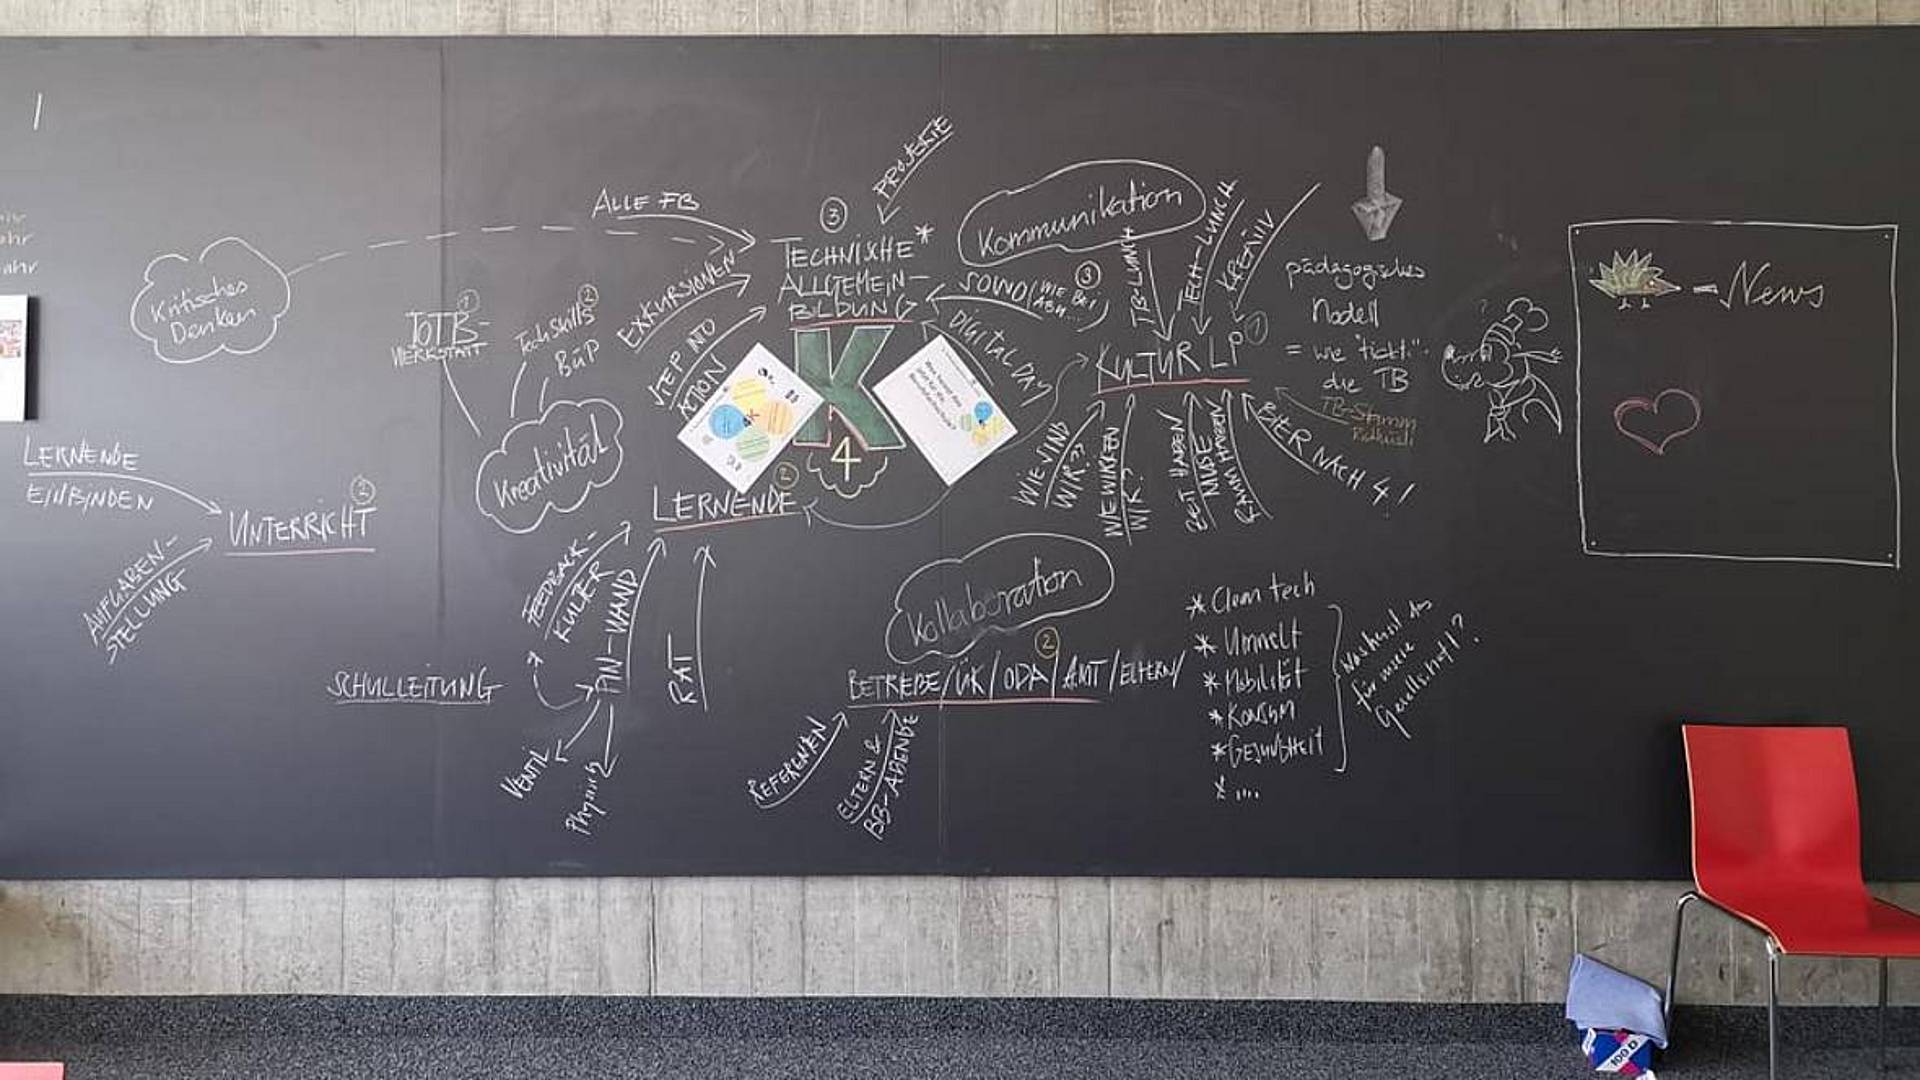 ALLE FB
PROJEKTE
③
TECHNISCHE*
ALLGEMEIN-
BILDUNG
EXKURSIONEN
STEP INTO
ACTION
SOWO (WIE BEI
ABU...)
③
DIGITAL DAY
K
4
Kritisches
Denken
ToTB-
WERKSTATT
①
TechSkills
BüP
②
Kreativität
LERNENDE
EINBINDEN
UNTERRICHT
②
AUFGABEN-
STELLUNG
LERNENDE
②
FEEDBACK-
KULTUR
PIN-WAND
RAT
VENTIL
Physisch
SCHULLEITUNG
Kommunikation
TB-LUNCH
TECH-LUNCH
KREATIV
KULTUR LP
①
WIE SIND
WIR?
WIE WIRKEN
WIR?
ZEIT HABEN
MUSE
RAUM HABEN
BIER NACH 4!
pädagogisches
Modell
= wie "tickt"
die TB
TB-Stamm
Kollaboration
②
BETRIEBE/ÜK/ODA/AMT/ELTERN/
REFERENTEN
ELTERN &
BB-ABENDE
* Clean tech
* Umwelt
* Mobilität
* Konsum
* GESUNDHEIT
* ...
Was heisst das
für unsere
Gesellschaft?
= News
100 D